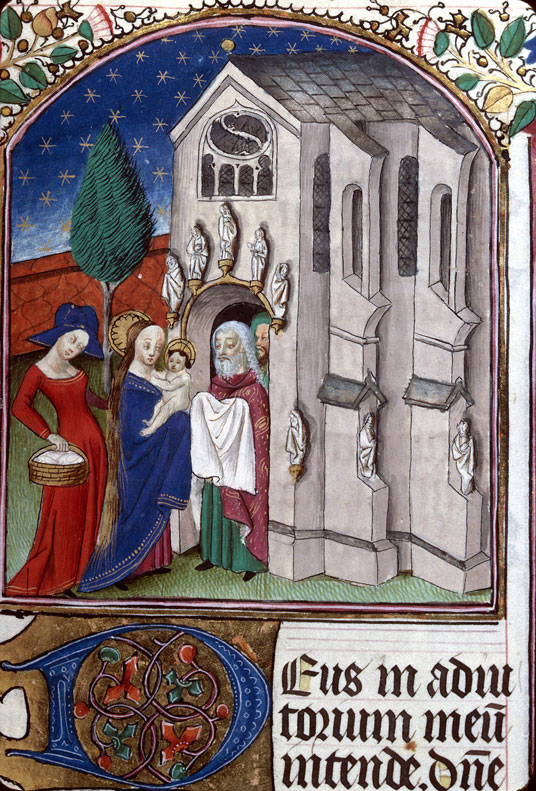 Deus in adiu
torium meū
intende. dn̄e